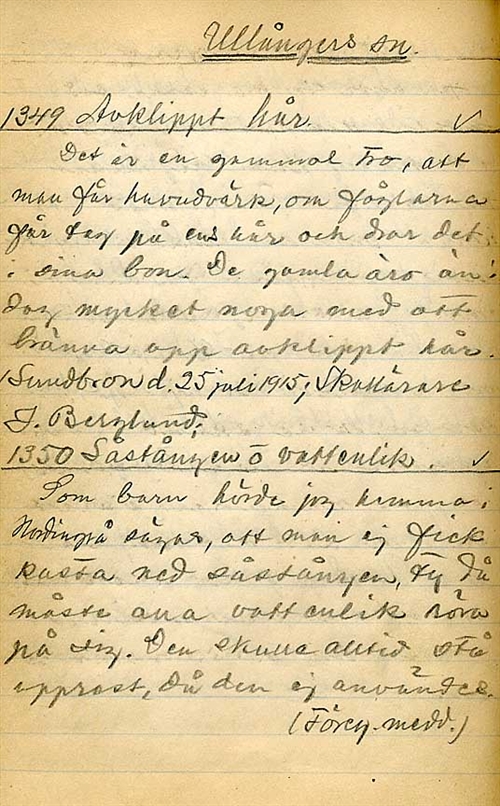 Ullångers sn.
1349 Avklippt hår. ✓
Det är en gammal tro, att
man får huvudvärk, om fåglarna
får tag på ens hår och drar det
i sina bon. De gamla äro än i
dag mycket noga med att
bränna opp avklippt hår.
(Sundbron d. 25 juli 1915; Skattärare
J. Berglund;
1350 Såstången o vattenlik. ✓
Som barn hörde jag hemma i
Nordingrå sägas, att man ej fick
kasta ned såstången, ty då
måste alla vattenlik röra
på sig. Den skulle alltid stå
upprest, då den ej användes.
(Föreg. medd.)